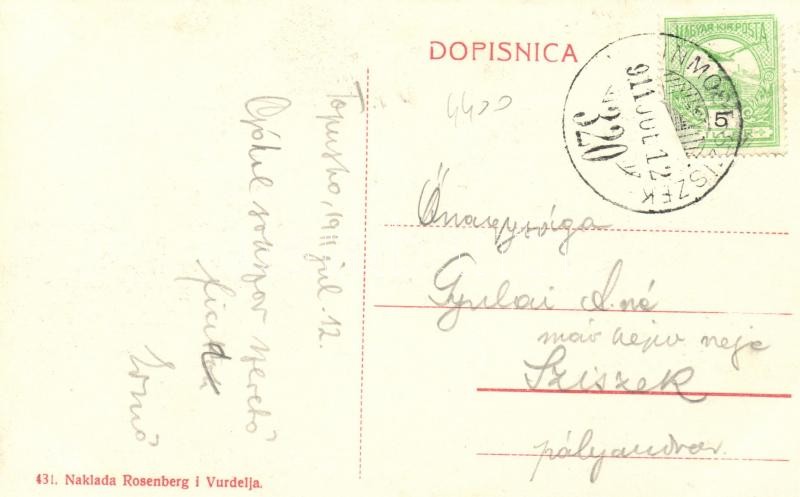 DOPISNICA
MAGYAR KIR. POSTA
5
911 JUL 12
320
SZISZEK
4400
Topusko, 1911 jul. 12.
sokszor szerető
Ernő
Őnagysága
Gyulai A.né
neje
Sziszek
pályaudvar.
431. Naklada Rosenberg i Vurdelja.